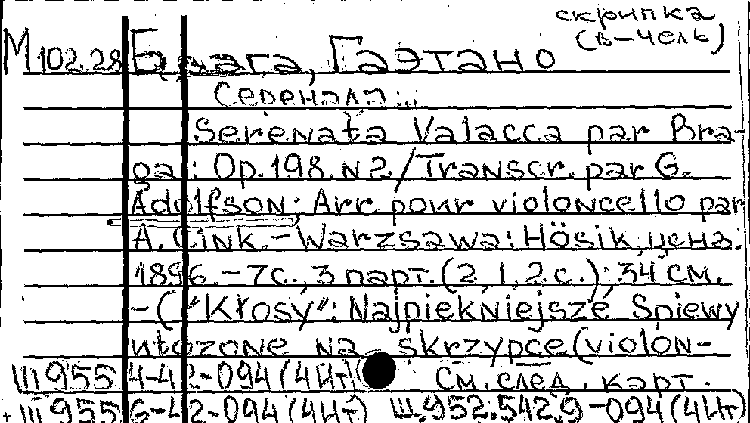 скрипка
(в-чель)
М 102.28 Брага, Гаэтано
Серенада...
Serenata Valacca par Bra-
ga: Op. 198. N2/Transcr. par G.
Adolfson; Arr. pour violoncello par
A. Cink. - Warzsawa: Hösik, цена.
1896. - 7 с., 3 парт. (2, 1, 2 с.); 34 см.
-("Kłosy": Najpiekniejsze Spiewy
utozone na skrzypce (violon-
Ш 955 4-42-094 (4Ит) См. след. карт.
Ш 955 6-42-094 (4Ит) Ш.952.542.9-094 (4Ит)